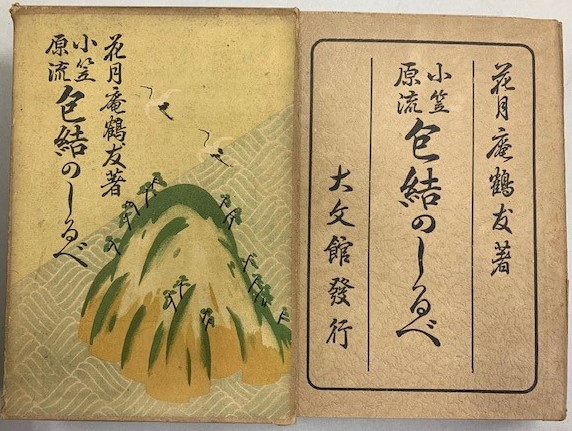 花月庵鶴友著
小笠原流 包結のしるべ
花月庵鶴友著
小笠原流 包結のしるべ
大文館發行